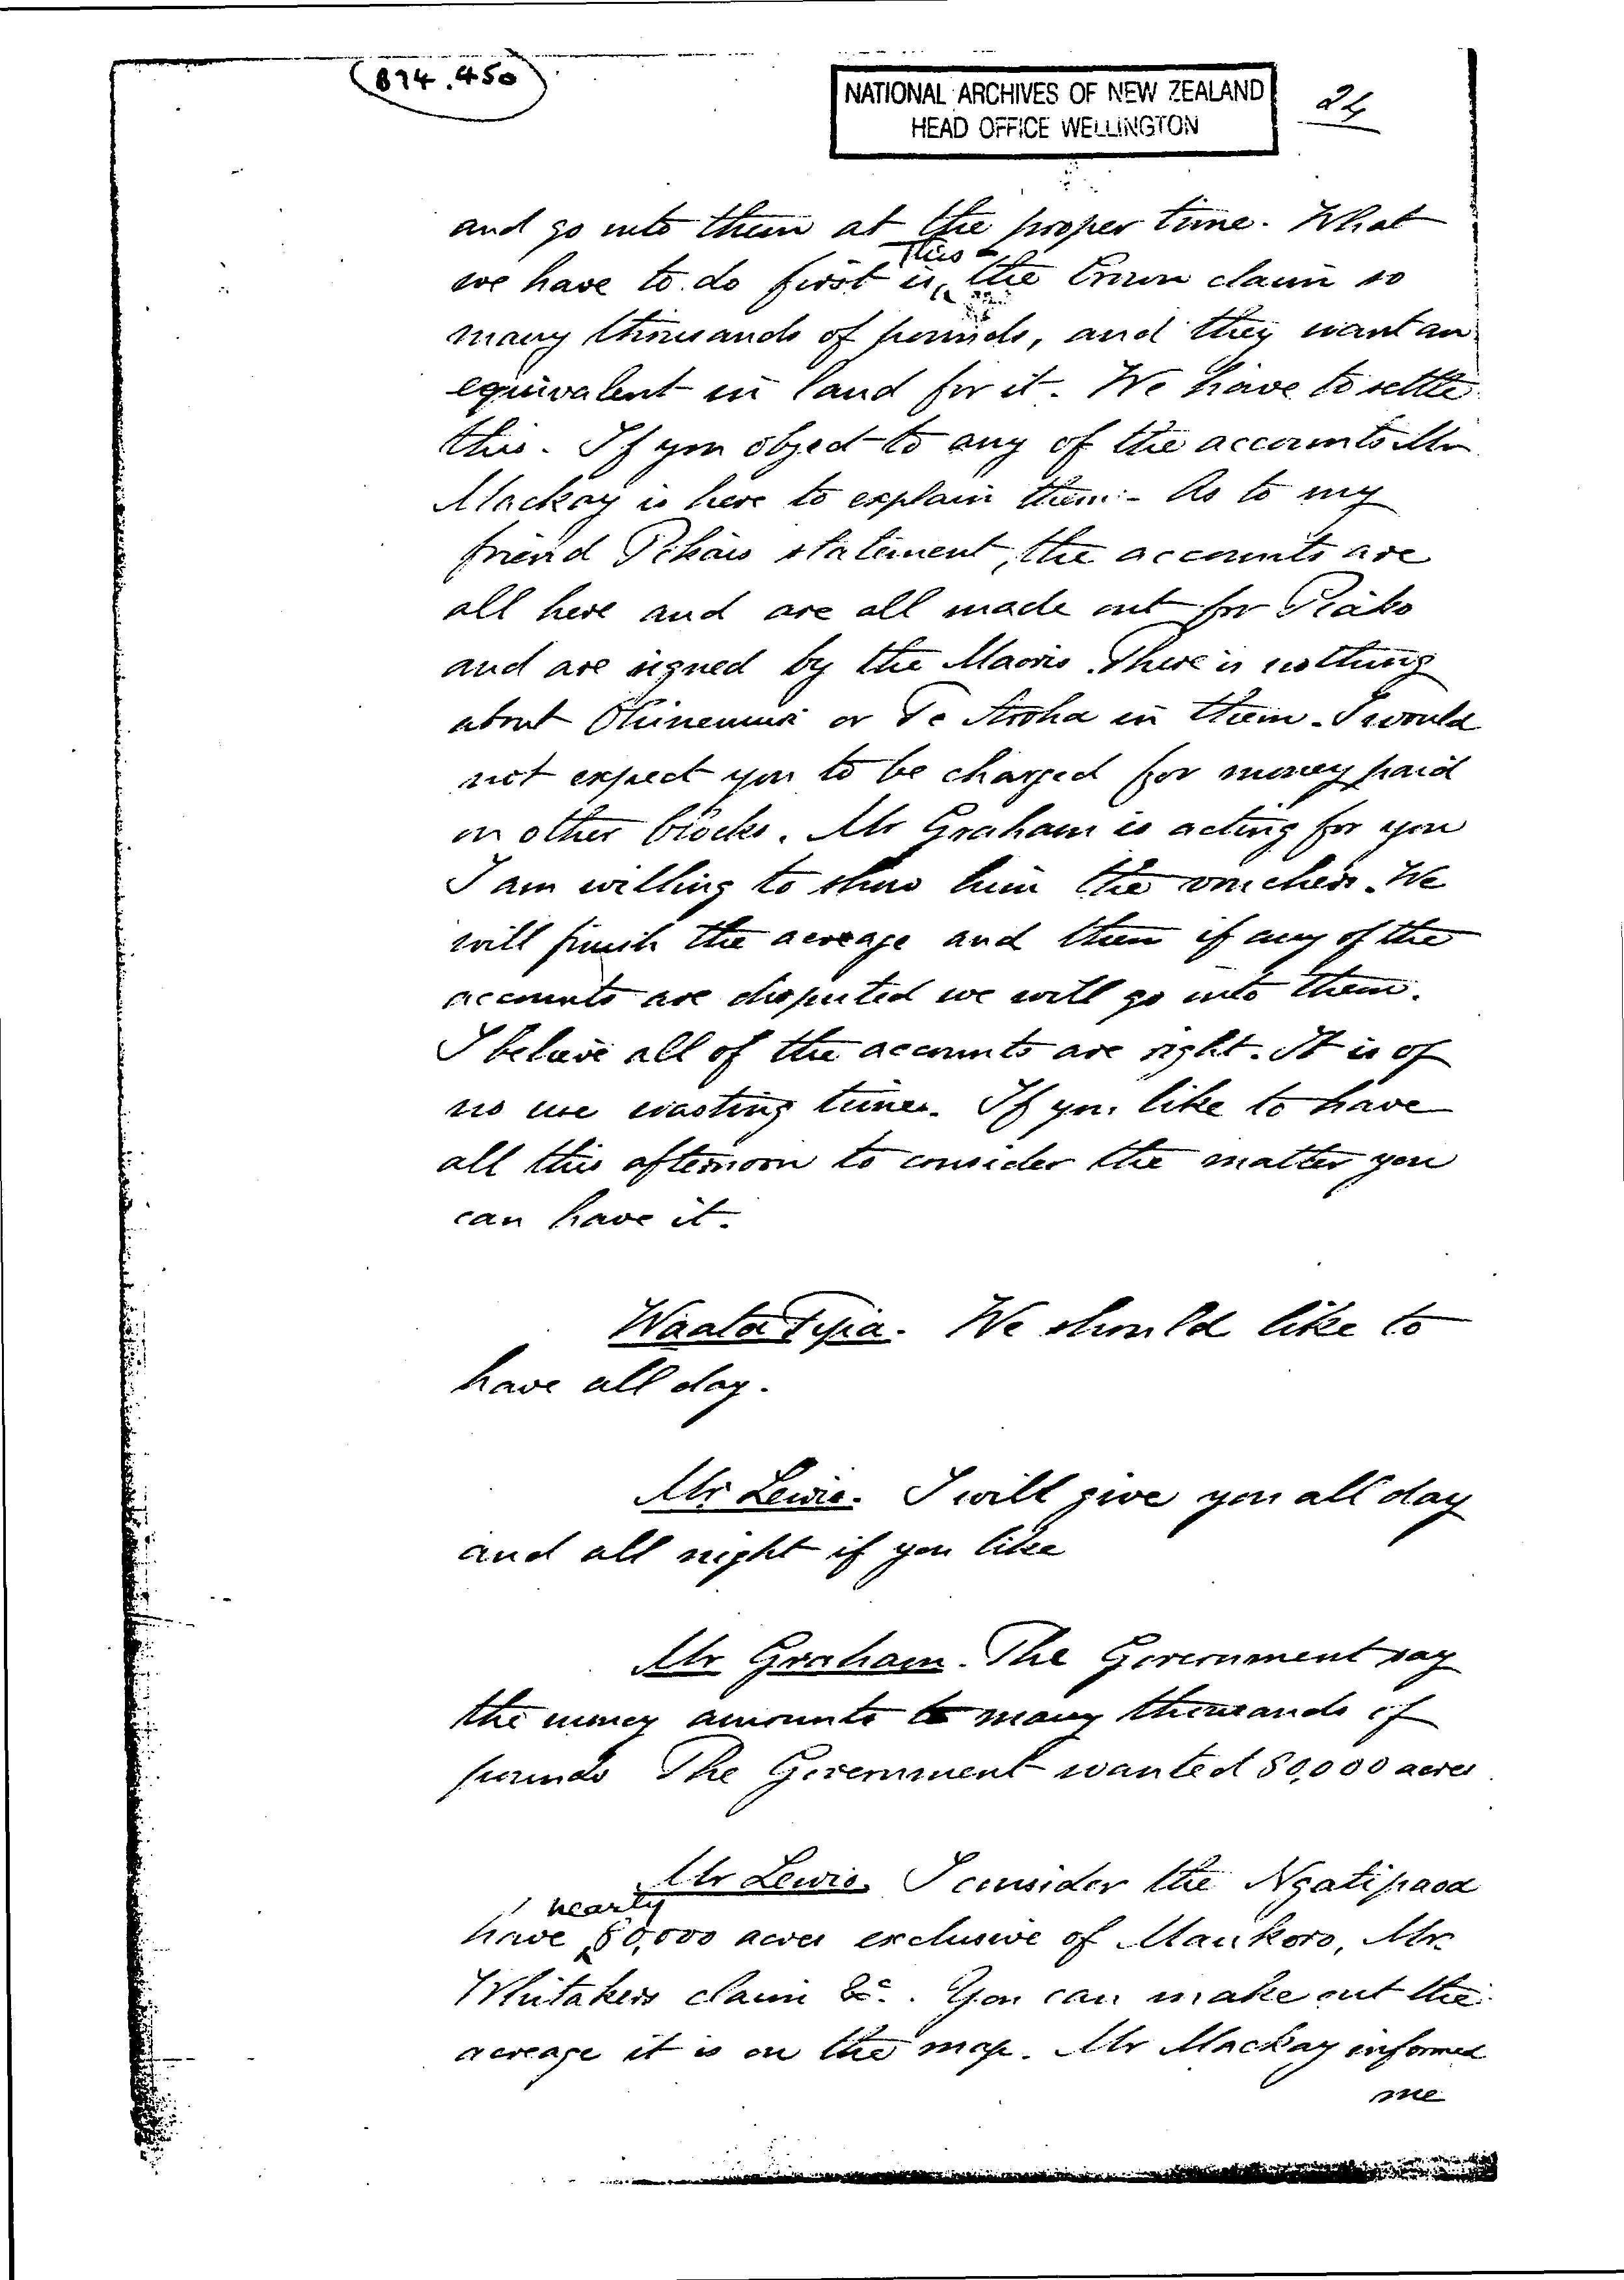 (874.450)
NATIONAL ARCHIVES OF NEW ZEALAND
HEAD OFFICE WELLINGTON
24
and go into them at the proper time. What
we have to do first is, this - the Crown claim so
many thousands of pounds, and they want an
equivalent in land for it. We have to settle
this. If you object to any of the accounts Mr
Mackay is here to explain them:- As to my
friend statement, the accounts are
all here and are all made out for Piako
and are signed by the Maoris. There is nothing
about Ohinemuri or Te Aroha in them. I would
not expect you to be charged for money paid
on other blocks. Mr Graham is acting for you
I am willing to show him the vouchers. We
will finish the acreage and then if any of the
accounts are disputed we will go into them.
I believe all of the accounts are right. It is of
no use wasting time. If you like to have
all this afternoon to consider the matter you
can have it.
Waata Tipia. We should like to
have all day.
Mr Lewis. I will give you all day
and all night if you like
Mr Graham. The Government say
the money amounts to many thousands of
pounds The Government wanted 80,000 acres
Mr Lewis. I consider the Ngatipaoa
have nearly 80,000 acres exclusive of Maukoro, Mr
Whitakers claim &c. You can make out the
acreage it is on the map. Mr Mackay informed
me